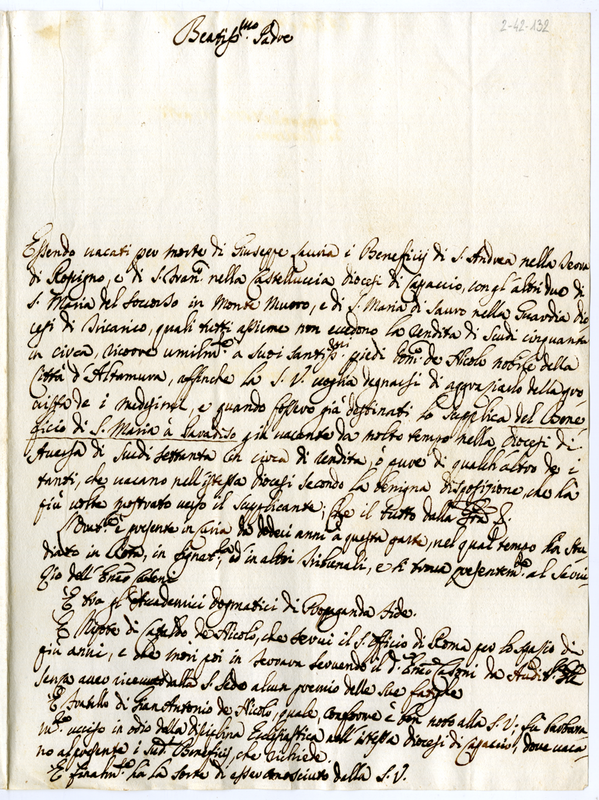 2-42-132
Beatiss.mo Padre
Essendo vacati per morte di Giuseppe Lauria i Beneficij di S. Andrea nella Terra
di Rofrigno, e di S. Fran. nella Castelluccia diocesi di Capaccio, con gl'altri due di
S. Maria del Soccorso in Monte Murro, e di S. Maria di Sauro nella Guardia dio
cesi di Tricarico, quali tutti assieme non eccedono la rendita di Scudi cinquanta
in circa, ricorre umilm.e a suoi Santiss.i piedi Dom.co de Nicolò nobile della
Città d'Altamura, affinche la S. V. voglia degnarsi di aggraziarlo della pro
vista de i medesimi, e quando fossero già destinati lo Supplica del Bene
ficio di S. Maria à Paradiso già vacante da molto tempo nella Diocesi di
Aversa di Scudi settanta in circa di rendita, ò pure di qualch'altro de i
tanti, che vacano nell'istessa Diocesi secondo la benigna disposizione, che hà
più volte mostrato verso il Supplicante; Che il tutto dalla
è presente in Curia da dodeci anni a questa parte, nel qual tempo hà stu
diato in Rota, in Segnat.ra, et in altri Tribunali, e si trova presentem.te al Servi
gio dell'Em.o Casoni
È tra gl'Academici Dogmatici di Propaganda Fide.
È Nipote di Cataldo de Nicolò, che servì il S. Officio di Roma per lo spazio di
più anni, e che morì poi in Ferrara servendo il d.o Em.o Casoni da Audit.re
senza aver ricevuto dalla S. Sede alcun premio delle sue fatighe
È fratello di Gian Antonio de Nicolò, quale, conforme è ben noto alla S. V., fù barbara
m.te ucciso in odio della disciplina Ecclesiastica nell'istessa diocesi di Capaccio, dove vaca
no al presente i Sud.i Beneficij, che richiede.
E finalm.te hà la sorte di esser conosciuto dalla S. V.